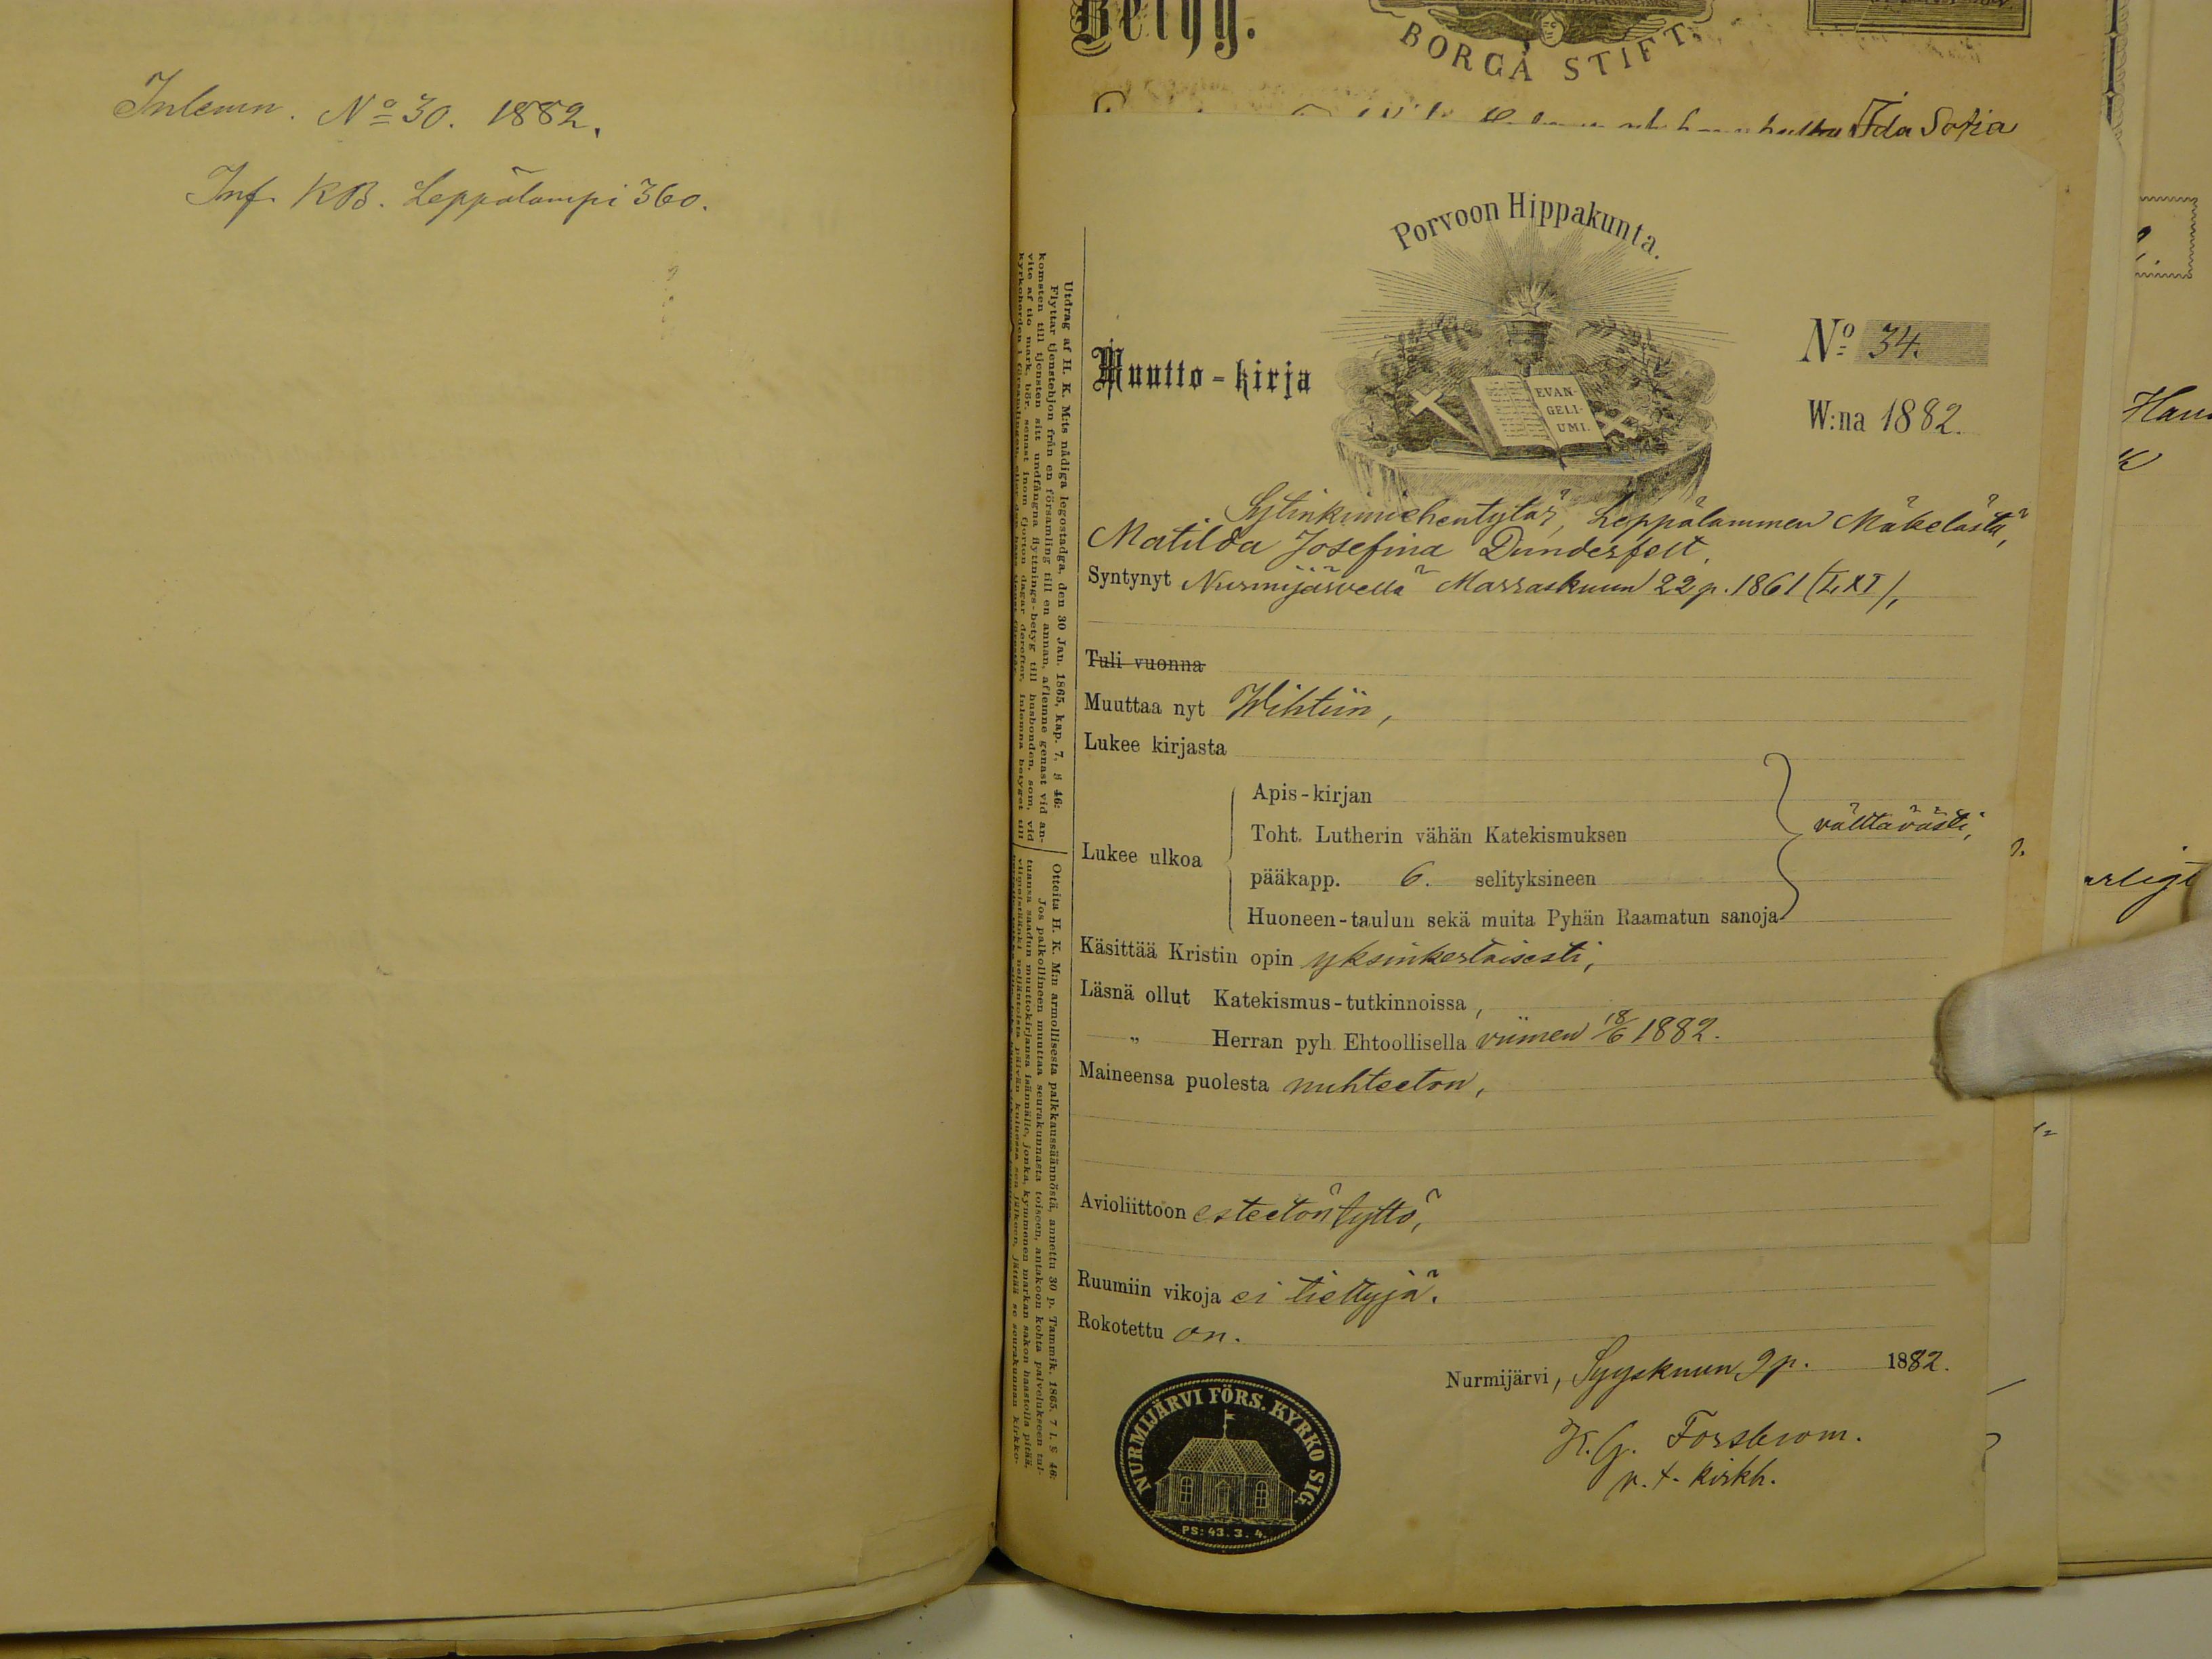 Inlemn. No 30. 1882.
Inf. KB. Leppälampi 360.
Betyg.
BORGÅ STIFT.
Ida Sofia
Porvoon Hippakunta.
EVAN-
GELI-
UMI.
Muutto-kirja
No 34.
W:na 1882.
Sytinkimiehentytär, Leppälammen Mäkelästä,
Matilda Josefina Dunderfelt,
Syntynyt Nurmijärvellä Marraskuun 22 p. 1861 (LXI),
Tuli vuonna
Muuttaa nyt Wihtiin,
Lukee kirjasta
Lukee ulkoa
Apis-kirjan
Toht. Lutherin vähän Katekismuksen
pääkapp. 6. selityksineen
Huoneen-taulun sekä muita Pyhän Raamatun sanoja
välttävästi,
Käsittää Kristin opin yksinkertaisesti,
Läsnä ollut Katekismus-tutkinnoissa,
„ Herran pyh. Ehtoollisella viimen 18/6 1882.
Maineensa puolesta nuhteeton,
Avioliittoon esteetön tyttö,
Ruumiin vikoja ei tiettyjä.
Rokotettu on.
Nurmijärvi, Syyskuun 9 p. 1882.
K. G. Forsbrom.
v. t. kirkh.
NURMIJÄRVI FÖRS. KYRKO SIG.
PS: 43. 3. 4.
Utdrag af H. K. M:ts nådiga legostadga, den 30 Jan. 1865, kap. 7, § 46:
Flyttar tjenstehjon från en församling till en annan, aflemne genast vid an-
komsten till tjensten sitt undfångna flyttnings-betyg till husbonden, som, vid
vite af tio mark, bör, senast inom fjorton dagar derefter, inlemna betyget till
Otteita H. K. M:n armollisesta palkkaussäännöstä, annettu 30 p. Tammik. 1865, 7 l. § 46:
Jos palkollineen muuttaa seurakunnasta toiseen, antakoon kohta palvelukseen tul-
tuansa saadun muuttokirjansa isännälle, jonka, kymmenen markan sakon haastolla pitää,